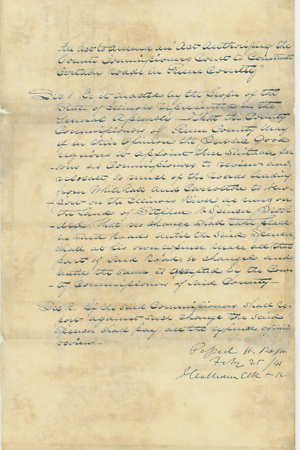 An act to amend an "Act Authorizing the
County Commissioners Court to Construct
Certain Roads in Greene County"
Sec. 1 Be it enacted by the People of the
State of Illinois represented in the
General Assembly That the County
Commissioners of Greene County may
if in their Opinion the Public Good
requires it appoint three suitable Per
sons as Commissioners to review and
relocate so much of the roads leading
from Whitehall and Carrollton to
on the Illinois River as runs on
the land of Stephen Spencer Prov
ided That no change shall take place
in said Roads until the said Spencer
Shall at his own expense make all that
part of said Road, so changed and
until the same is accepted by the Coun
ty Commissioners of said County
Sec 2. If the said Commissioners shall re
port against such change the said
Spencer shall pay all the expenses of said
review
Passed H. Reps
Feby 25 /41
Clk H R